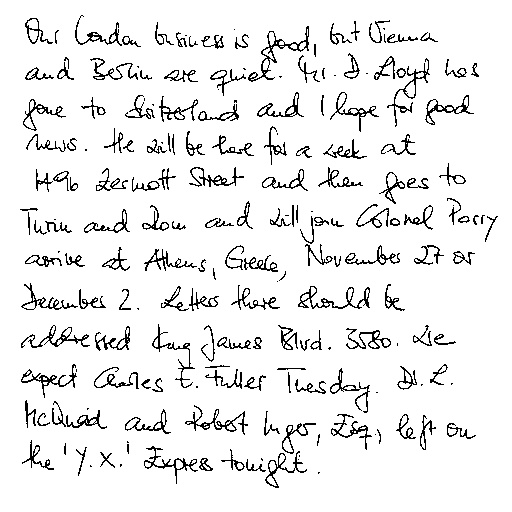 Our London business is good, but Vienna
and Berlin are quiet. Mr. D. Lloyd has
gone to Switzerland and I hope for good
news. He will be here for a week at
1496 Zermott Street and then goes to
Turin and Rom and will join Colonel Parry
arrive at Athens, Greece, November 27 or
December 2. Letters there should be
addressed King James Blvd. 3580. We
expect Charles E. Fuller Tuesday. Dr. L.
McQuaid and Robert Unger, Esq., left on
the 'Y.X.' Express tonight.